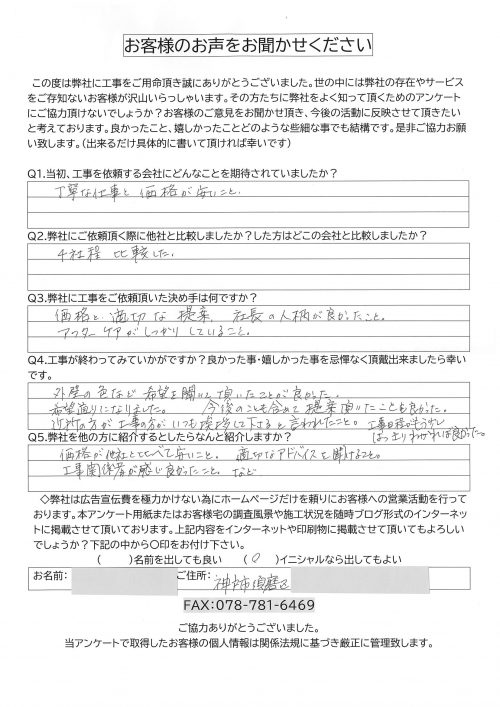 お客様のお声をお聞かせください
この度は弊社に工事をご用命頂き誠にありがとうございました。世の中には弊社の存在やサービス
をご存知ないお客様が沢山いらっしゃいます。その方たちに弊社をよく知って頂くためのアンケート
にご協力頂けないでしょうか？お客様のご意見をお聞かせ頂き、今後の活動に反映させて頂きたい
と考えております。良かったこと、嬉しかったことどのような些細な事でも結構です。是非ご協力お願
い致します。（出来るだけ具体的に書いて頂ければ幸いです）
Q1.当初、工事を依頼する会社にどんなことを期待されていましたか？
丁寧な仕事と価格が安いこと。
Q2.弊社にご依頼頂く際に他社と比較しましたか？した方はどこの会社と比較しましたか？
4社程 比較した。
Q3.弊社に工事をご依頼頂いた決め手は何ですか？
価格と適切な提案、社長の人柄が良かったこと。
アフターケアがしっかりしていること。
Q4.工事が終わってみていかがですか？良かった事・嬉しかった事を忌憚なく頂戴出来ましたら幸い
です。
外壁の色など希望を聞いて頂いたことが良かった。
希望通りになりました。 今後のことも含めて提案頂いたことも良かった。
近所の方が工事の方がいつも挨拶して下さると言われたこと。 工事日程がもう少し
はっきりわかれば良かった。
Q5.弊社を他の方に紹介するとしたらなんと紹介しますか？
価格が他社と比べて安いこと。適切なアドバイスを聞けること。
工事関係者が感じ良かったこと。など
◇弊社は広告宣伝費を極力かけない為にホームページだけを頼りにお客様への営業活動を行って
おります。本アンケート用紙またはお客様宅の調査風景や施工状況を随時ブログ形式のインターネッ
トに掲載させて頂いております。上記内容をインターネットや印刷物に掲載させて頂いてもよろしい
でしょうか？下記の中から〇印をお付け下さい。
（　　）名前を出しても良い　（〇）イニシャルなら出してもよい
お名前： ご住所： 神戸市須磨区
FAX:078-781-6469
ご協力ありがとうございました。
当アンケートで取得したお客様の個人情報は関係法規に基づき厳正に管理致します。